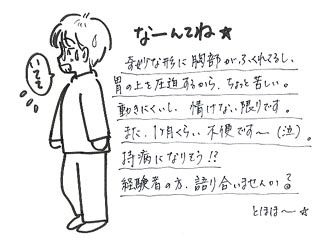 なーんてね☆
奇妙な形に胸部がふくれてるし、
胃の上を圧迫するから、ちょっと苦しい。
動きにくいし、情けない限りです。
また、1ヶ月くらい不便です〜(泣)。
持病になりそう!?
経験者の方、語り合いませんか?
とほほ〜☆
いてて